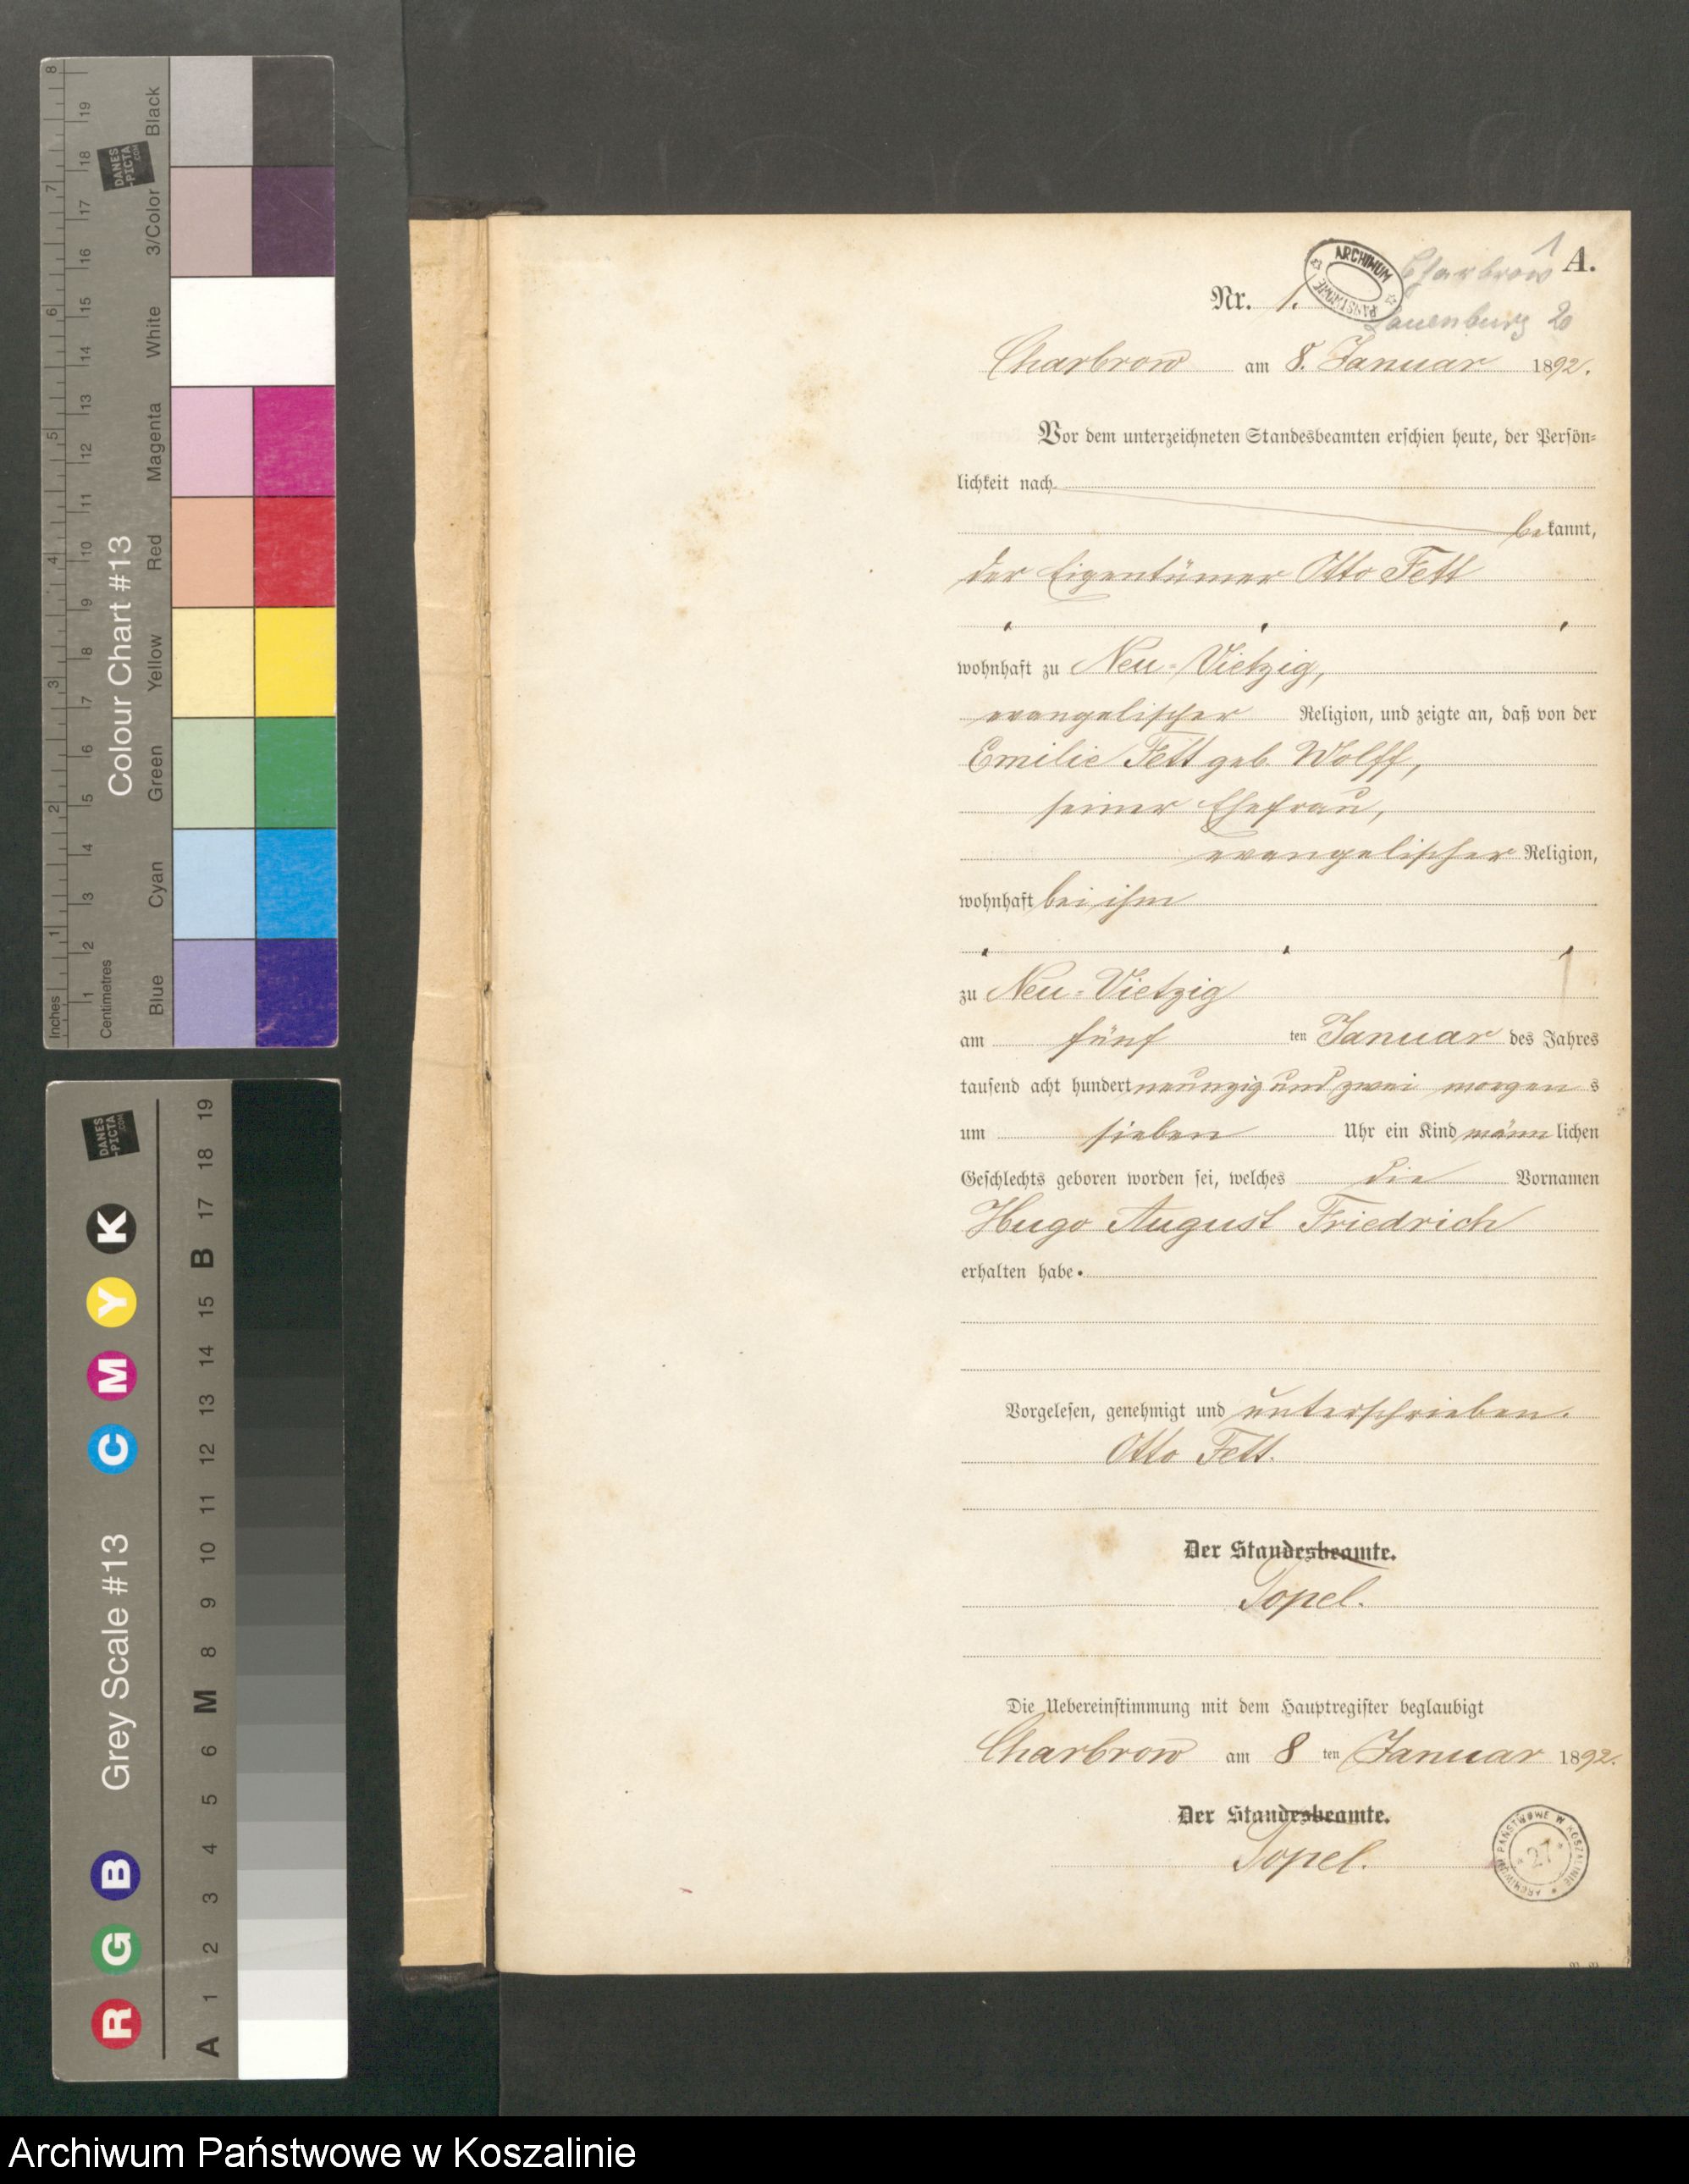 1
A.
ARCHIWUM PAŃSTWOWE
Charbrow
Nr. 1.
Lauenburg 20
Charbrow am 8. Januar 1892.
Vor dem unterzeichneten Standesbeamten erschien heute, der Persön-
lichkeit nach
bekannt,
der Eigentümer Otto Fett
wohnhaft zu Neu-Vietzig,
evangelischer Religion, und zeigte an, daß von der
Emilie Fett geb. Wolff,
seiner Ehefrau,
evangelischer Religion,
wohnhaft bei ihm
zu Neu-Vietzig
am fünf ten Januar des Jahres
tausend acht hundert neunzig und zwei morgens
um sieben Uhr ein Kind männlichen
Geschlechts geboren worden sei, welches die Vornamen
Hugo August Friedrich
erhalten habe.
Vorgelesen, genehmigt und unterschrieben.
Otto Fett.
Der Standesbeamte.
Topel.
Die Uebereinstimmung mit dem Hauptregister beglaubigt
Charbrow am 8 ten Januar 1892.
Der Standesbeamte.
Topel.
ARCHIWUM PAŃSTWOWE W KOSZALINIE
27
Colour Chart #13
Inches
1 2 3 4 5 6 7 8
Centimetres
1 2 3 4 5 6 7 8 9 10 11 12 13 14 15 16 17 18 19
Blue Cyan Green Yellow Red Magenta White 3/Color Black
DANES
-PICTA
.COM
Grey Scale #13
R G B C M Y K
A 1 2 3 4 5 6 M 8 9 10 11 12 13 14 15 B 17 18 19
DANES
-PICTA
.COM
Archiwum Państwowe w Koszalinie